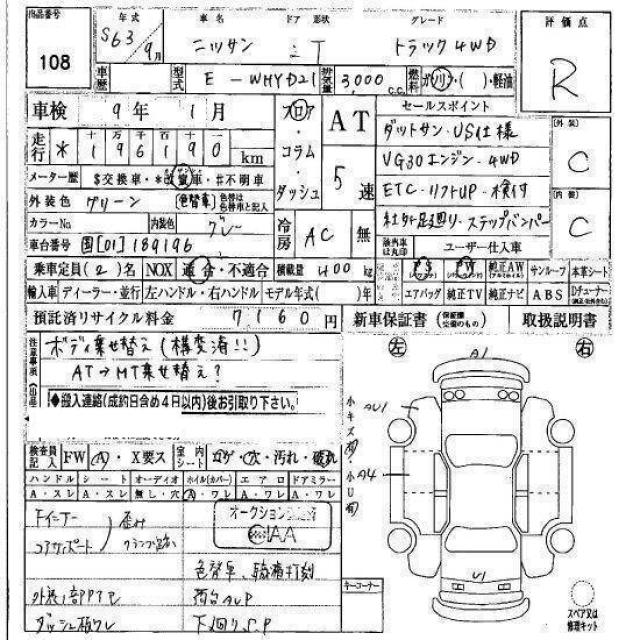 出品番号 年式 車名 ドア 形状 グレード 評価点
108 S63 9月 ニッサン 2 T トラック4WD R
車歴 型式 E-WHYD21 排気量 3,000 c.c. 燃料 ガソリン・( )・軽油
車検 9年 1月 フロア・コラム・ダッシュ AT セールスポイント
走行 * 十 1 万 9 千 6 百 1 十 9 一 0 km 5速
ダットサン・US仕様
VG30エンジン・4WD
ETC・リフトUP・検付
社外足廻り・ステップバンパー
外装 C
内装 C
メーター歴 $交換車・*改ざん車・#不明車
外装色 グリーン (色替車) 色替は色替車と記入
カラーNo 内装色 グレー 冷房 AC 無
車台番号 国[01]189196 該当車は丸印 ユーザー仕入車
乗車定員(2)名 NOX 適合・不適合 積載量 400kg PS PW 純正AW サンルーフ 本革シート
輸入車 ディーラー・並行 左ハンドル・右ハンドル モデル年式( )年 エアバッグ 純正TV 純正ナビ ABS
預託済リサイクル料金 7160円 新車保証書 取扱説明書
注意事項 ボディ乗せ替え(構変済!!)
AT→MT乗せ替え?
◆搬入連絡(成約日含め4日以内)後お引取り下さい。
左 右
A1
AU1
小キズ有
A4
小U有
U1
検査員記入 FW A・X要ス 室内シート コゲ・穴・汚れ・破れ
ハンドル シート オーディオ ホイル(カバー) エアロ ドアミラー
A・スレ A・スレ 無し・穴 A・ワレ A・ワレ A・ワレ
オークション
JAA
コアサポート 歪み
色替車、職権打刻
荷台AUP
キーコーナー
ダッシュ板ワレ 下廻りS.P
スペア又は修理キット